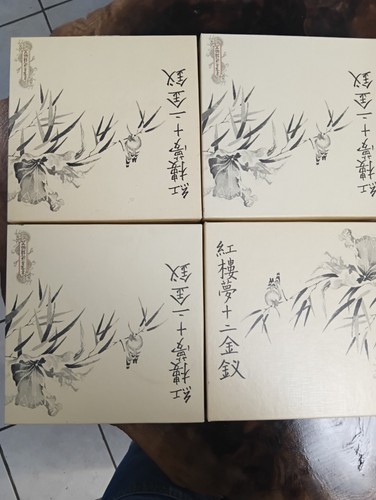 紅樓夢十二金釵
紅樓夢十二金釵
紅樓夢十二金釵
紅樓夢十二金釵